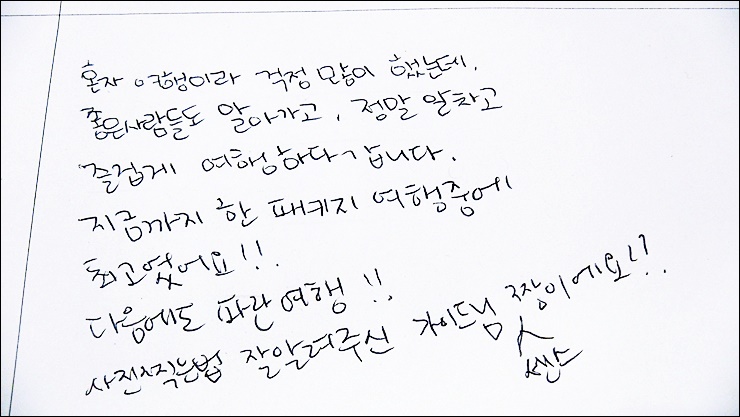 혼자 여행이라 걱정 많이 했는데,
좋은사람들도 알아가고, 정말 알차고
즐겁게 여행하다 갑니다.
지금까지 한 패키지 여행중에
최고였어요!!
다음에도 파란여행!!
사진찍는법 잘알려주신 가이드님 짱이에요!?
센스